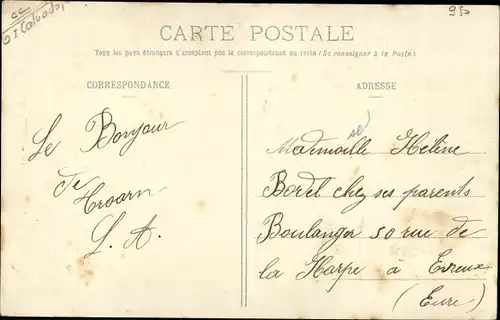 CARTE POSTALE
Tous les pays étrangers n'acceptent pas la correspondance au recto (Se renseigner à la Poste)
CORRESPONDANCE
ADRESSE
Le Bonjour
De
Troarn
L. A.
se
Mademoille Helène
Borel chez ses parents
Boulanger 50 rue de
la Harpe à Evreux
(Eure)